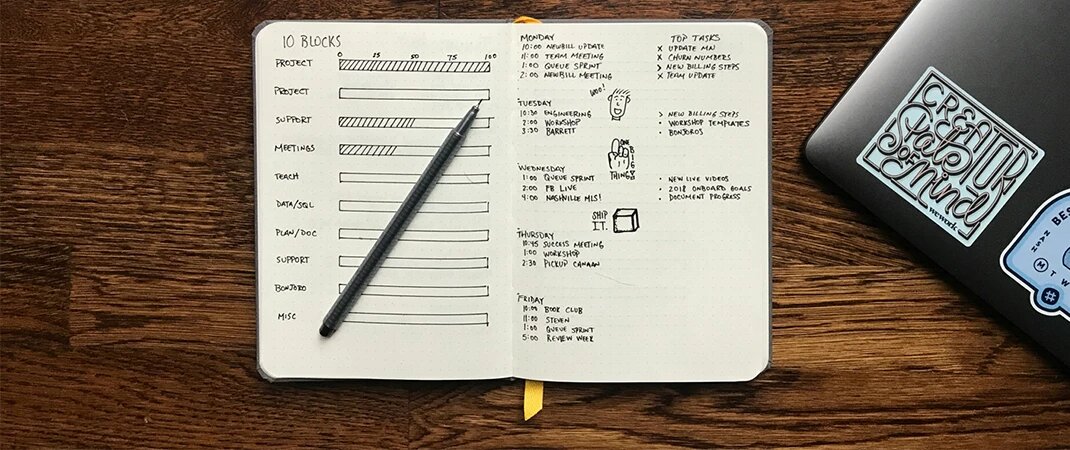 10 BLOCKS
0 25 50 75 100
PROJECT
PROJECT
SUPPORT
MEETINGS
TEACH
DATA/SQL
PLAN/DOC
SUPPORT
BONJORO
MISC
MONDAY
10:00 NEWBILL UPDATE
11:00 TEAM MEETING
1:00 QUEUE SPRINT
2:00 NEWBILL MEETING
TOP TASKS
X UPDATE MN
X CHURN NUMBERS
> NEW BILLING STEPS
X TEAM UPDATE
WOO!
TUESDAY
10:30 ENGINEERING
2:00 WORKSHOP
3:30 BARRETT
> NEW BILLING STEPS
• WORKSHOP TEMPLATES
• BONJOROS
BIG
THINGS
WEDNESDAY
1:00 QUEUE SPRINT
2:00 FB LIVE
4:00 NASHVILLE MLS!
• NEW LIVE VIDEOS
• 2018 ONBOARD GOALS
• DOCUMENT PROGRESS
SHIP
IT.
THURSDAY
10:45 SUCCESS MEETING
1:00 WORKSHOP
2:30 PICKUP CANAAN
FRIDAY
10:00 BOOK CLUB
11:00 STEVEN
1:00 QUEUE SPRINT
5:00 REVIEW WEEK
CREATOR
State
OF
Mind
wework
BES
NASH
M T W
#